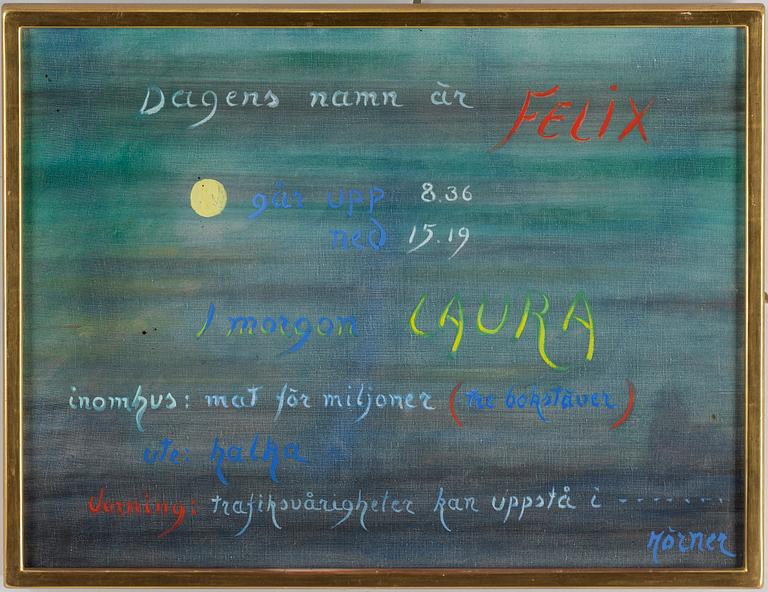 Dagens namn är FELIX
går upp 8.36
ned 15.19
I morgon LAURA
inomhus: mat för miljoner (tre bokstäver)
ute: halka
Varning: trafiksvårigheter kan uppstå i -------
Mörner